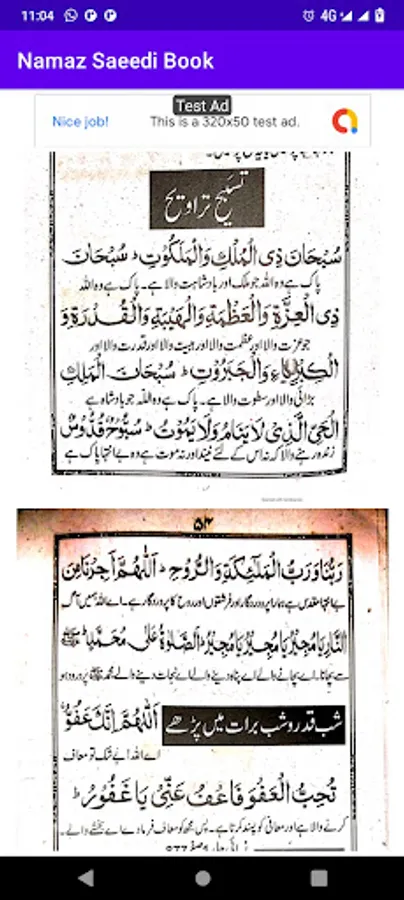 11:04
4G
Namaz Saeedi Book
Test Ad
Nice job! This is a 320x50 test ad.
تسبیح تراویح
سُبْحَانَ ذِی الْمُلْكِ وَالْمَلَكُوْتِ ؕ سُبْحَانَ
پاک ہے وہ اللہ جو ملک اور بادشاہت والا ہے۔ پاک ہے وہ اللہ
ذِی الْعِزَّةِ وَالْعَظَمَةِ وَالْهَیْبَةِ وَالْقُدْرَةِ وَ
جو عزت والا اور عظمت والا اور ہیبت والا اور قدرت والا اور
الْكِبْرِیَآءِ وَالْجَبَرُوْتِ ؕ سُبْحَانَ الْمَلِكِ
بڑائی والا اور سطوت والا ہے۔ پاک ہے وہ اللہ جو بادشاہ ہے
الْحَیِّ الَّذِیْ لَا یَنَامُ وَلَا یَمُوْتُ ؕ سُبُّوْحٌ قُدُّوْسٌ
زندہ رہنے والا کہ نہ اس کے لئے نیند اور نہ موت ہے وہ بے انتہا پاک ہے
۵۲
رَبُّنَا وَرَبُّ الْمَلٰٓئِكَةِ وَالرُّوْحِ ؕ اَللّٰهُمَّ اَجِرْنَا مِنَ
بے انتہا مقدس ہے ہمارا پروردگار اور فرشتوں اور روح کا پروردگار ہے۔ اے اللہ ہمیں آگ
النَّارِ یَا مُجِیْرُ یَا مُجِیْرُ یَا مُجِیْرُ ؕ اَلصَّلٰوةُ عَلٰی مُحَمَّدٍ ﷺ
سے بچانا۔ اے بچانے والے اے پناہ دینے والے اے نجات دینے والے محمد ﷺ پر درود ہو
شب قدر و شب برات میں پڑھے اَللّٰهُمَّ اِنَّكَ عَفُوٌّ
اے اللہ! بے شک تو معاف
تُحِبُّ الْعَفْوَ فَاعْفُ عَنِّیْ یَا غَفُوْرُ ؕ
کرنے والا ہے اور معافی کو پسند کرتا ہے۔ پس مجھ کو معاف فرما دے اے بخشنے والے۔